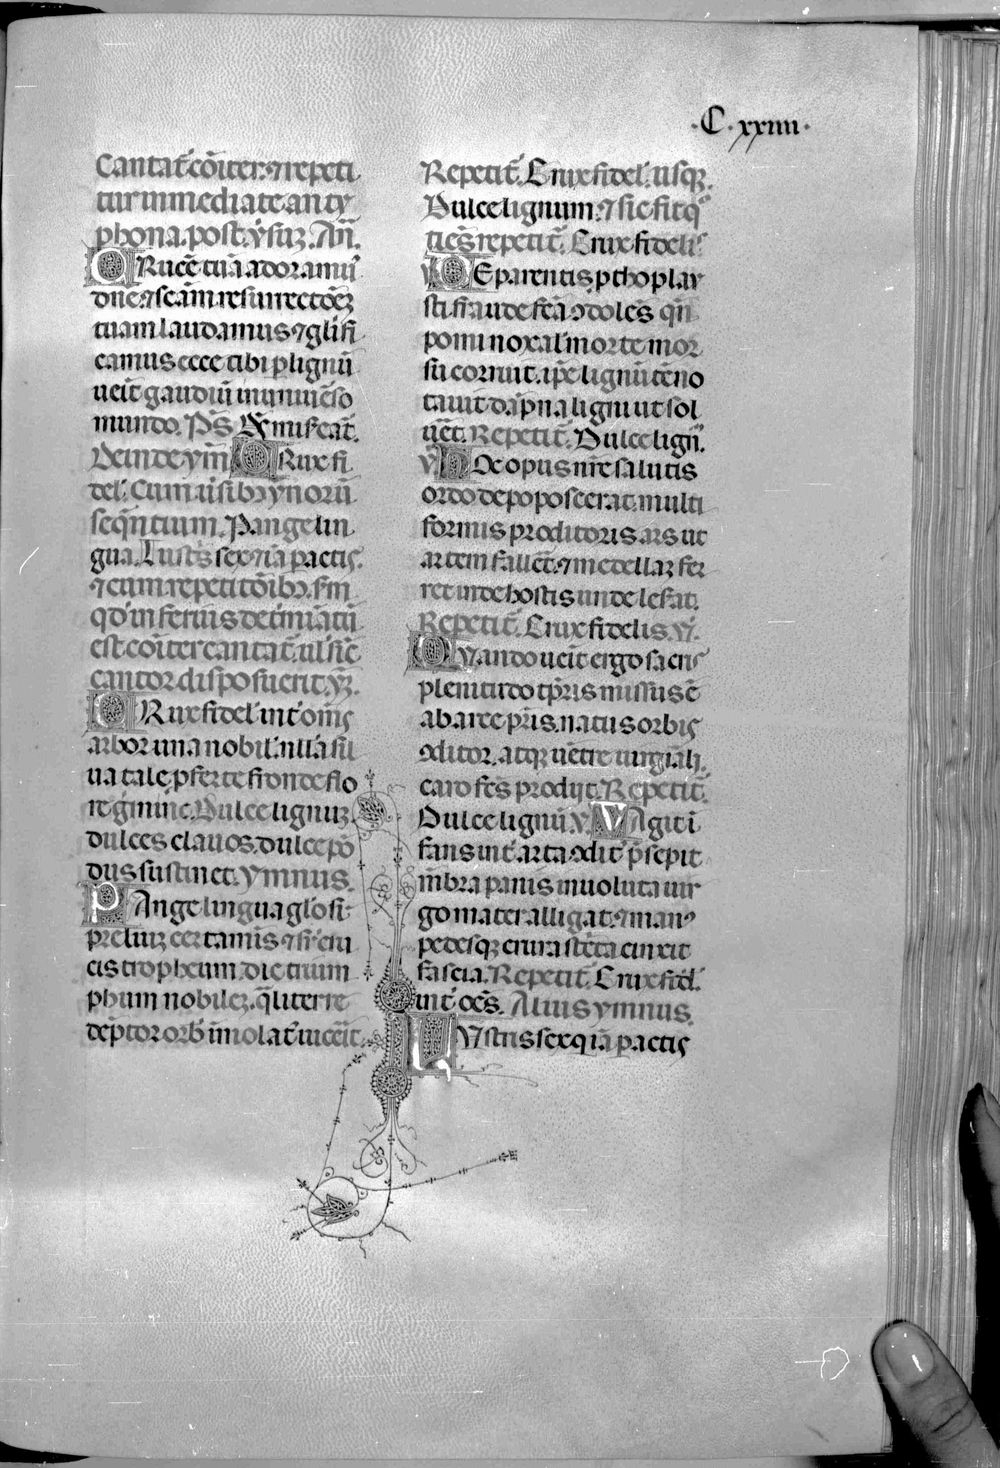 .C.xxiiii.
Cantat᷑ cōiter. ⁊ repeti
tur immediate anty
phona. post. ỹsuꝫ. Añ.
CRucē tuā adoramꝰ
dñe. ⁊ scām resurrectōeꝫ
tuam laudamus ⁊ glīfi
camus ecce eībi ꝑ lignū
ueīt gaudiū inuniuēso
mundo. Ps̄. Ds̄ miseat᷑.
Deinde ym̄ CRux fi
del'. Cum ūsibꝫ ynorū
seqn̄tium. Pange lin
gua. Lustrꝭ sex ⁊ ia pactis.
⁊ cum repetitōibꝫ. sm̄
qd' inferius det'minatū
est cōiter cantat᷑. ul' sic̄
cantor disposuerit. ỹꝫ.
CRux fidel' int' om̄s
arbor una nobil'. nulla sil
ua tale ꝓfert e fronde flo
re g'mine. Dulce lignuꝫ
dulces clauos. dulce pō
dus sustinet. Ymnus.
PAnge lingua glōsi
preliuꝫ certamis ⁊ sr̄ cru
cis tropheum. dic trium
phum nobileꝫ. qliter re
deptor orb' imolat' uiceīt.
Repetit᷑. Crux fidel'. usqꝫ.
Dulce lignum. ⁊ sic fit q
tiēs repetit᷑. Crux fidelis
ỹ DE parentis ꝓthoplas
sti fraude fcā ꝯdolēs. qn̄
pomi noxal' morte mor
su corruit. ipe lignū tē no
tauit. dāpna ligni ut sol
uēt. Repetit᷑. Dulce lign̄.
ỹ. HOc opus nr̄e salutis
ordo depoposcerat. multi
formis proditoris. ars ut
artem fallēt. ⁊ medellaꝫ fer
ret inde hostis unde lesat᷑.
Repetit᷑. Crux fidelis. ỹ.
QVando ueīt ergo sacri
plenitudo tp̄ris missus ē
ab arce pr̄is. natus orbis
ꝯditor. atqꝫ uētre uirgīali.
caro fcs̄ prodijt. Repetit᷑.
Dulce lignū. ỹ. VAgit ī
fans int' arta ꝯdit' p̄sepia
mēbra panīs inuoluta uir
go mater alligat. ⁊ manꝰ
pedesqꝫ crura strcta cinxit
fascia. Repetit᷑. Crux fidel'.
int' oēs. Alius ymnus.
LVstris sex qi iā pactis